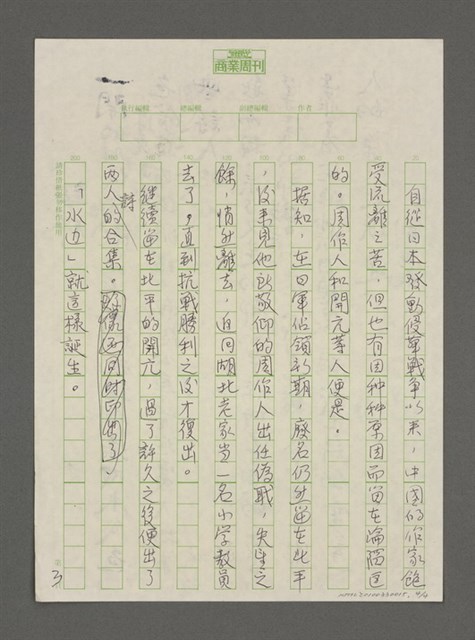 商業周刊
執行編輯
總編輯
副總編輯
作者
自從日本發動侵華戰爭以來，中國的作家飽
受流離之苦，但也有因种种原因而留在淪陷區
的。周作人和開元等人便是。
據知，在日軍佔領初期，廢名仍然留在北平
，後来見他所敬仰的周作人出任偽職，失望之
餘，悄然離去，返回湖北老家当一名小学教員
去了。直到抗戰勝利之後才復出。
継續留在北平的開元，過了許久之後便出了
兩人的詩合集。
「水边」就這樣誕生。
3